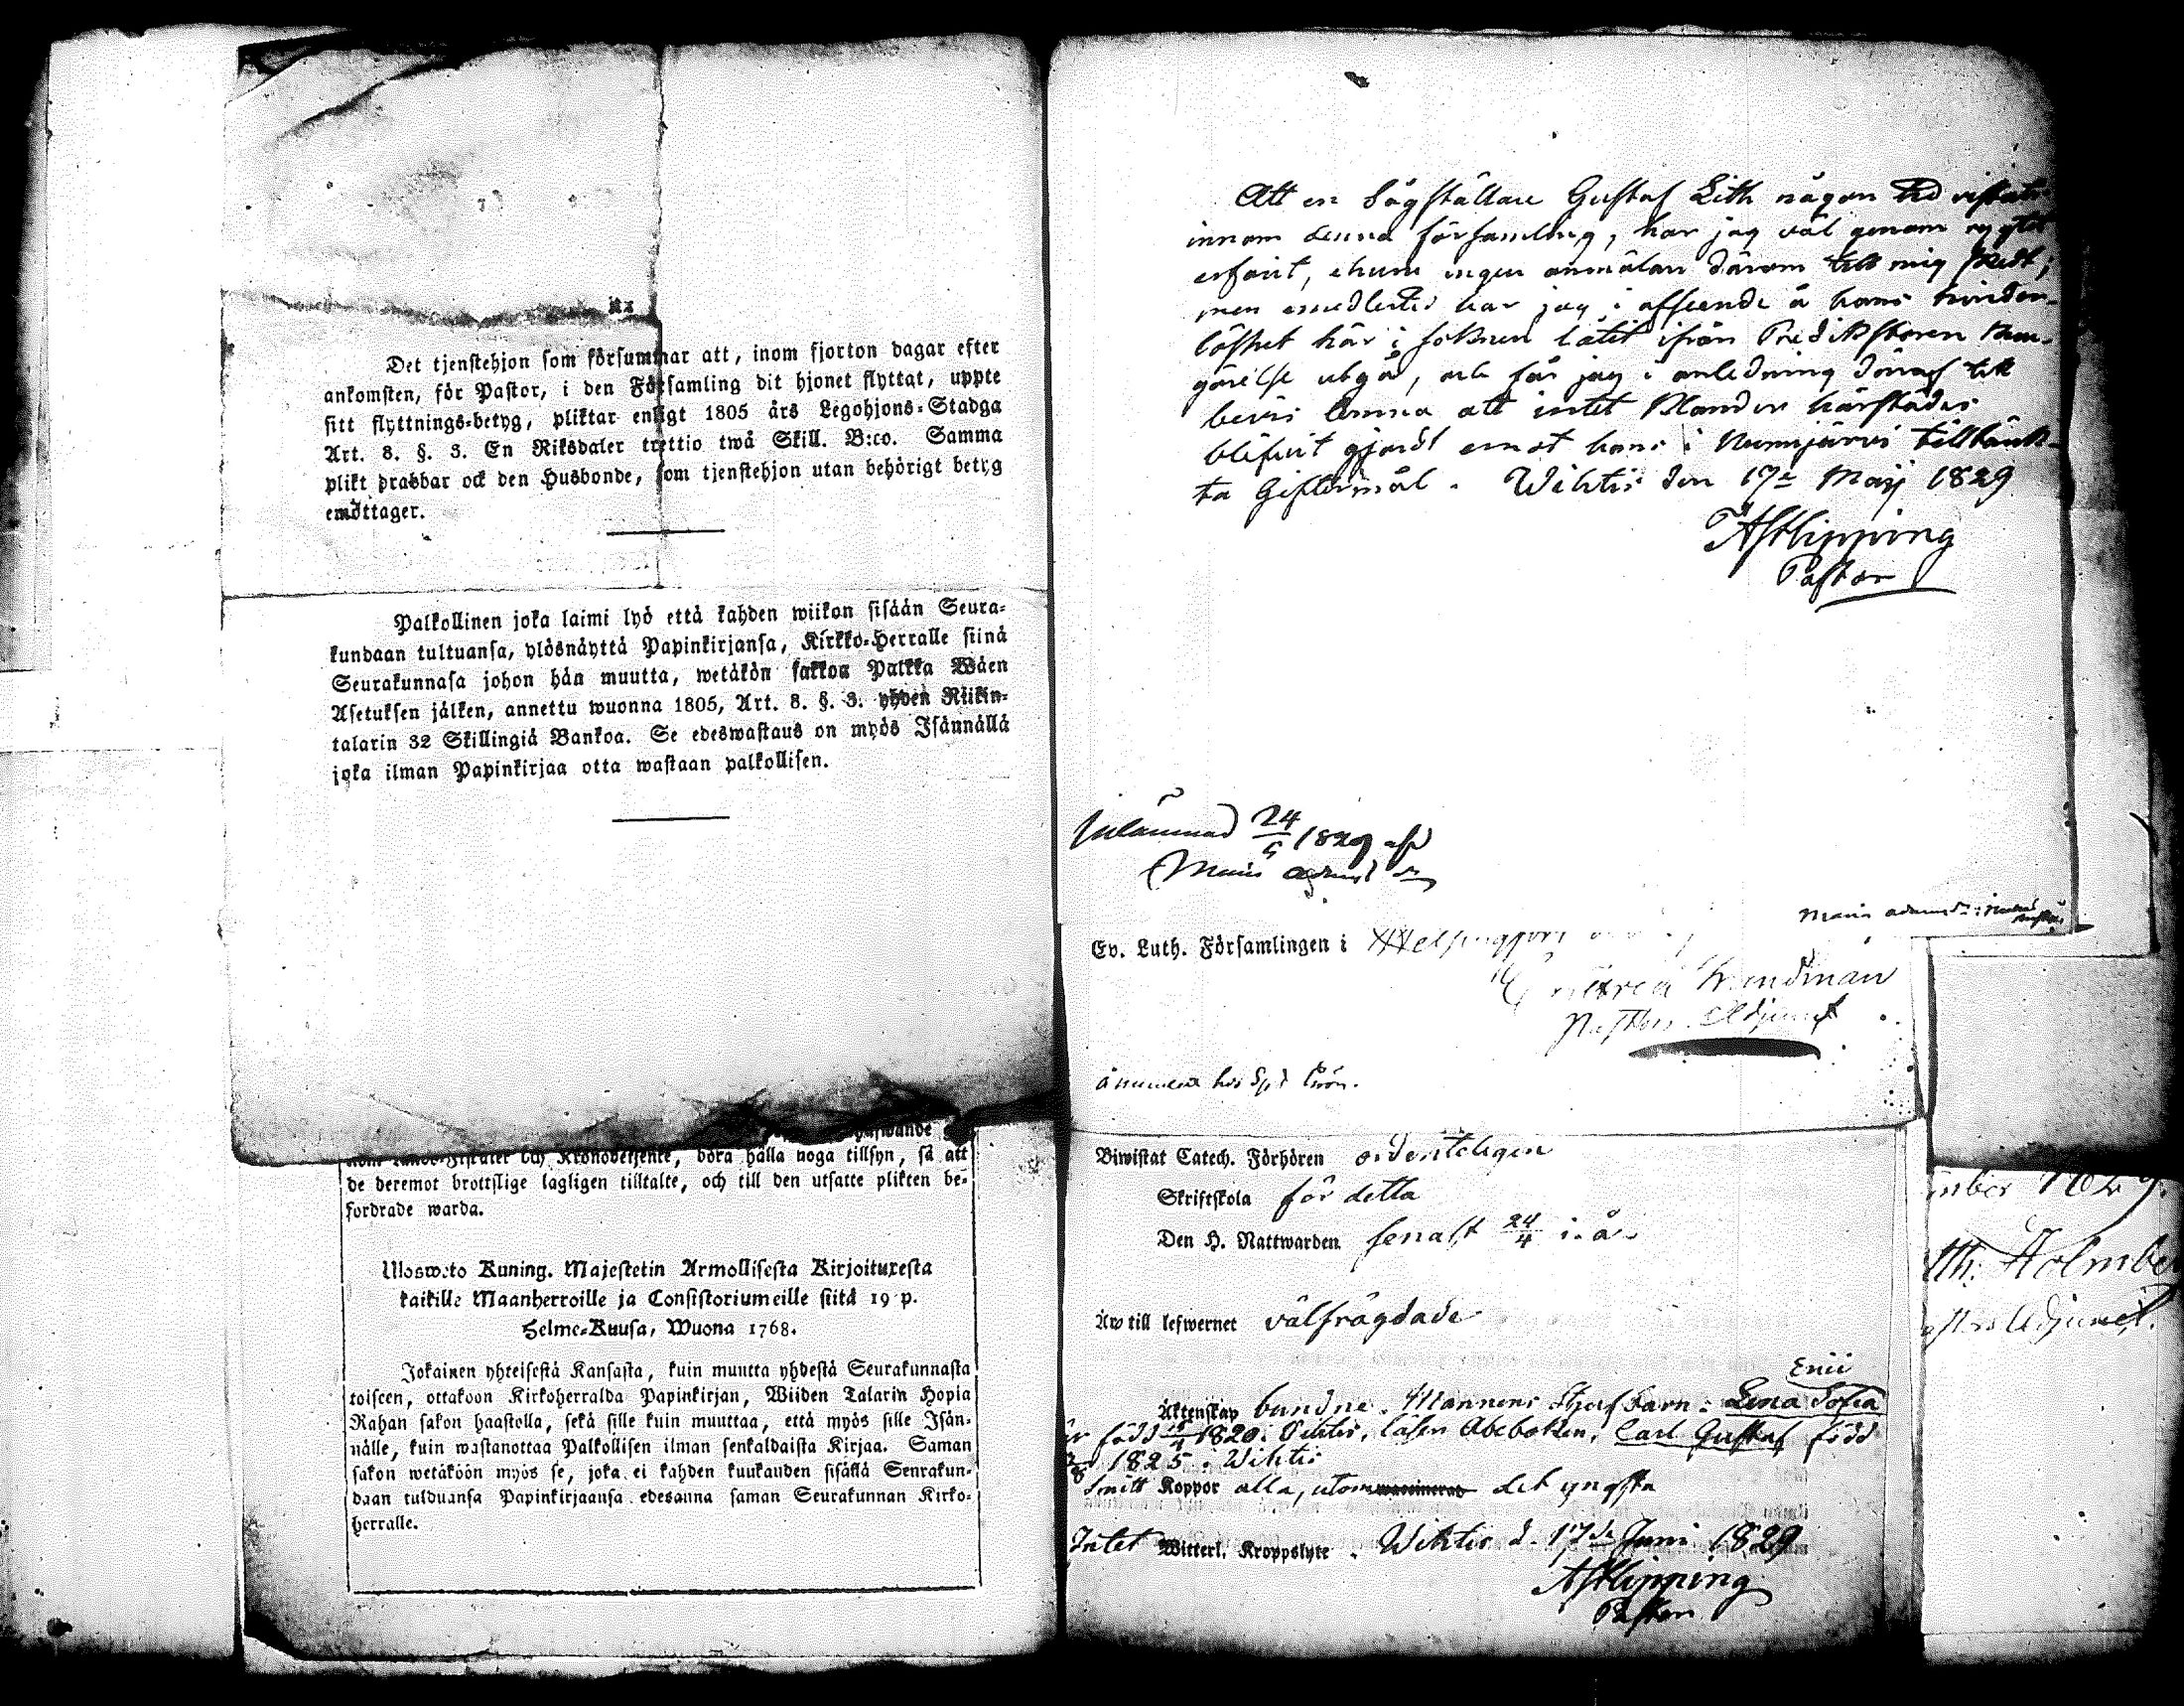 Det tjenstehjon som försummar att, inom fjorton dagar efter
ankomsten, för Pastor, i den Församling dit hjonet flyttat, uppte
sitt flyttnings-betyg, pliktar enligt 1805 års Legohjons-Stadga
Art. 8. §. 3. En Riksdaler trettio twå Skill. B:co. Samma
plikt drabbar ock den Husbonde, som tjenstehjon utan behörigt betyg
emottager.
Palkollinen joka laimi lyö että kahden wiikon sisään Seura-
kundaan tultuansa, ylösnäyttä Papinkirjansa, Kirkko-Herralle siinä
Seurakunnasa johon hän muutta, wetäkön sakkoa Palkka Wäen
Asetuksen jälken, annettu wuonna 1805, Art. 8. §. 3. yhden Riikin-
talarin 32 Skillingiä Bankoa. Se edeswastaus on myös Isännällä
joka ilman Papinkirjaa otta wastaan palkollisen.
Kronobetjente, böra hålla noga tillsyn, så att
de deremot brottslige lagligen tilltalte, och till den utsatte plikten be-
fordrade warda.
Ulosweto Kuning. Majestetin Armollisesta Kirjoituxesta
kaikille Maanherroille ja Consistoriumeille siitä 19 p.
Helme-Kuusa, Wuona 1768.
Jokainen yhteisestä Kansasta, kuin muutta yhdestä Seurakunnasta
toiseen, ottakoon Kirkoherralda Papinkirjan, Wiiden Talarin Hopia
Rahan sakon haastolla, sekä sille kuin muuttaa, että myös sille Isän-
nälle, kuin wastanottaa Palkollisen ilman senkaldaista Kirjaa. Saman
sakon wetäköön myös se, joka ei kahden kuukauden sisällä Seurakun-
daan tulduansa Papinkirjaansa edesanna saman Seurakunnan Kirko-
herralle.
Att en Sågställare Gustaf Lith någon tid vistats
innom denna församling, har jag väl genom ryktet
erfarit, ehuru ingen anmälan därom till mig skedt;
men emedlertid har jag i afseende å hans hinder-
löshet här i soknen låtit ifrån Predikstolen kun-
görelse utgå, och får jag i anledning däraf till
bevis lemna att intet klander härstädes
blifvit gjordt emot hans i Nurmijärvi tilltänk-
ta Giftermål. Wihtis den 17de Maji 1829
AStlipping
Pastor
Inlämnad 24/5 1829 af
Ev. Luth. Församlingen i Helsingfors
Pastors Adjunct
Biwistat Catech. Förhören ordenteligen
Skriftskola för detta
Den H. Nattwarden senast 24/4 i. å.
Äro till lefwernet välfrägdade
Enii
Äktenskap bundne. Mannens Stjufbarn: Lena Sofia
är född 1820 i Wihtis, läser Abeboken, Carl Gustaf född
1825 i Wihtis
Smitt Koppor alla, utom det yngsta
Intet Witterl. Kroppslyte. Wihtis d. 17de Juni 1829
AStlipping
Pastor
th: Holmbe
Adjunct.